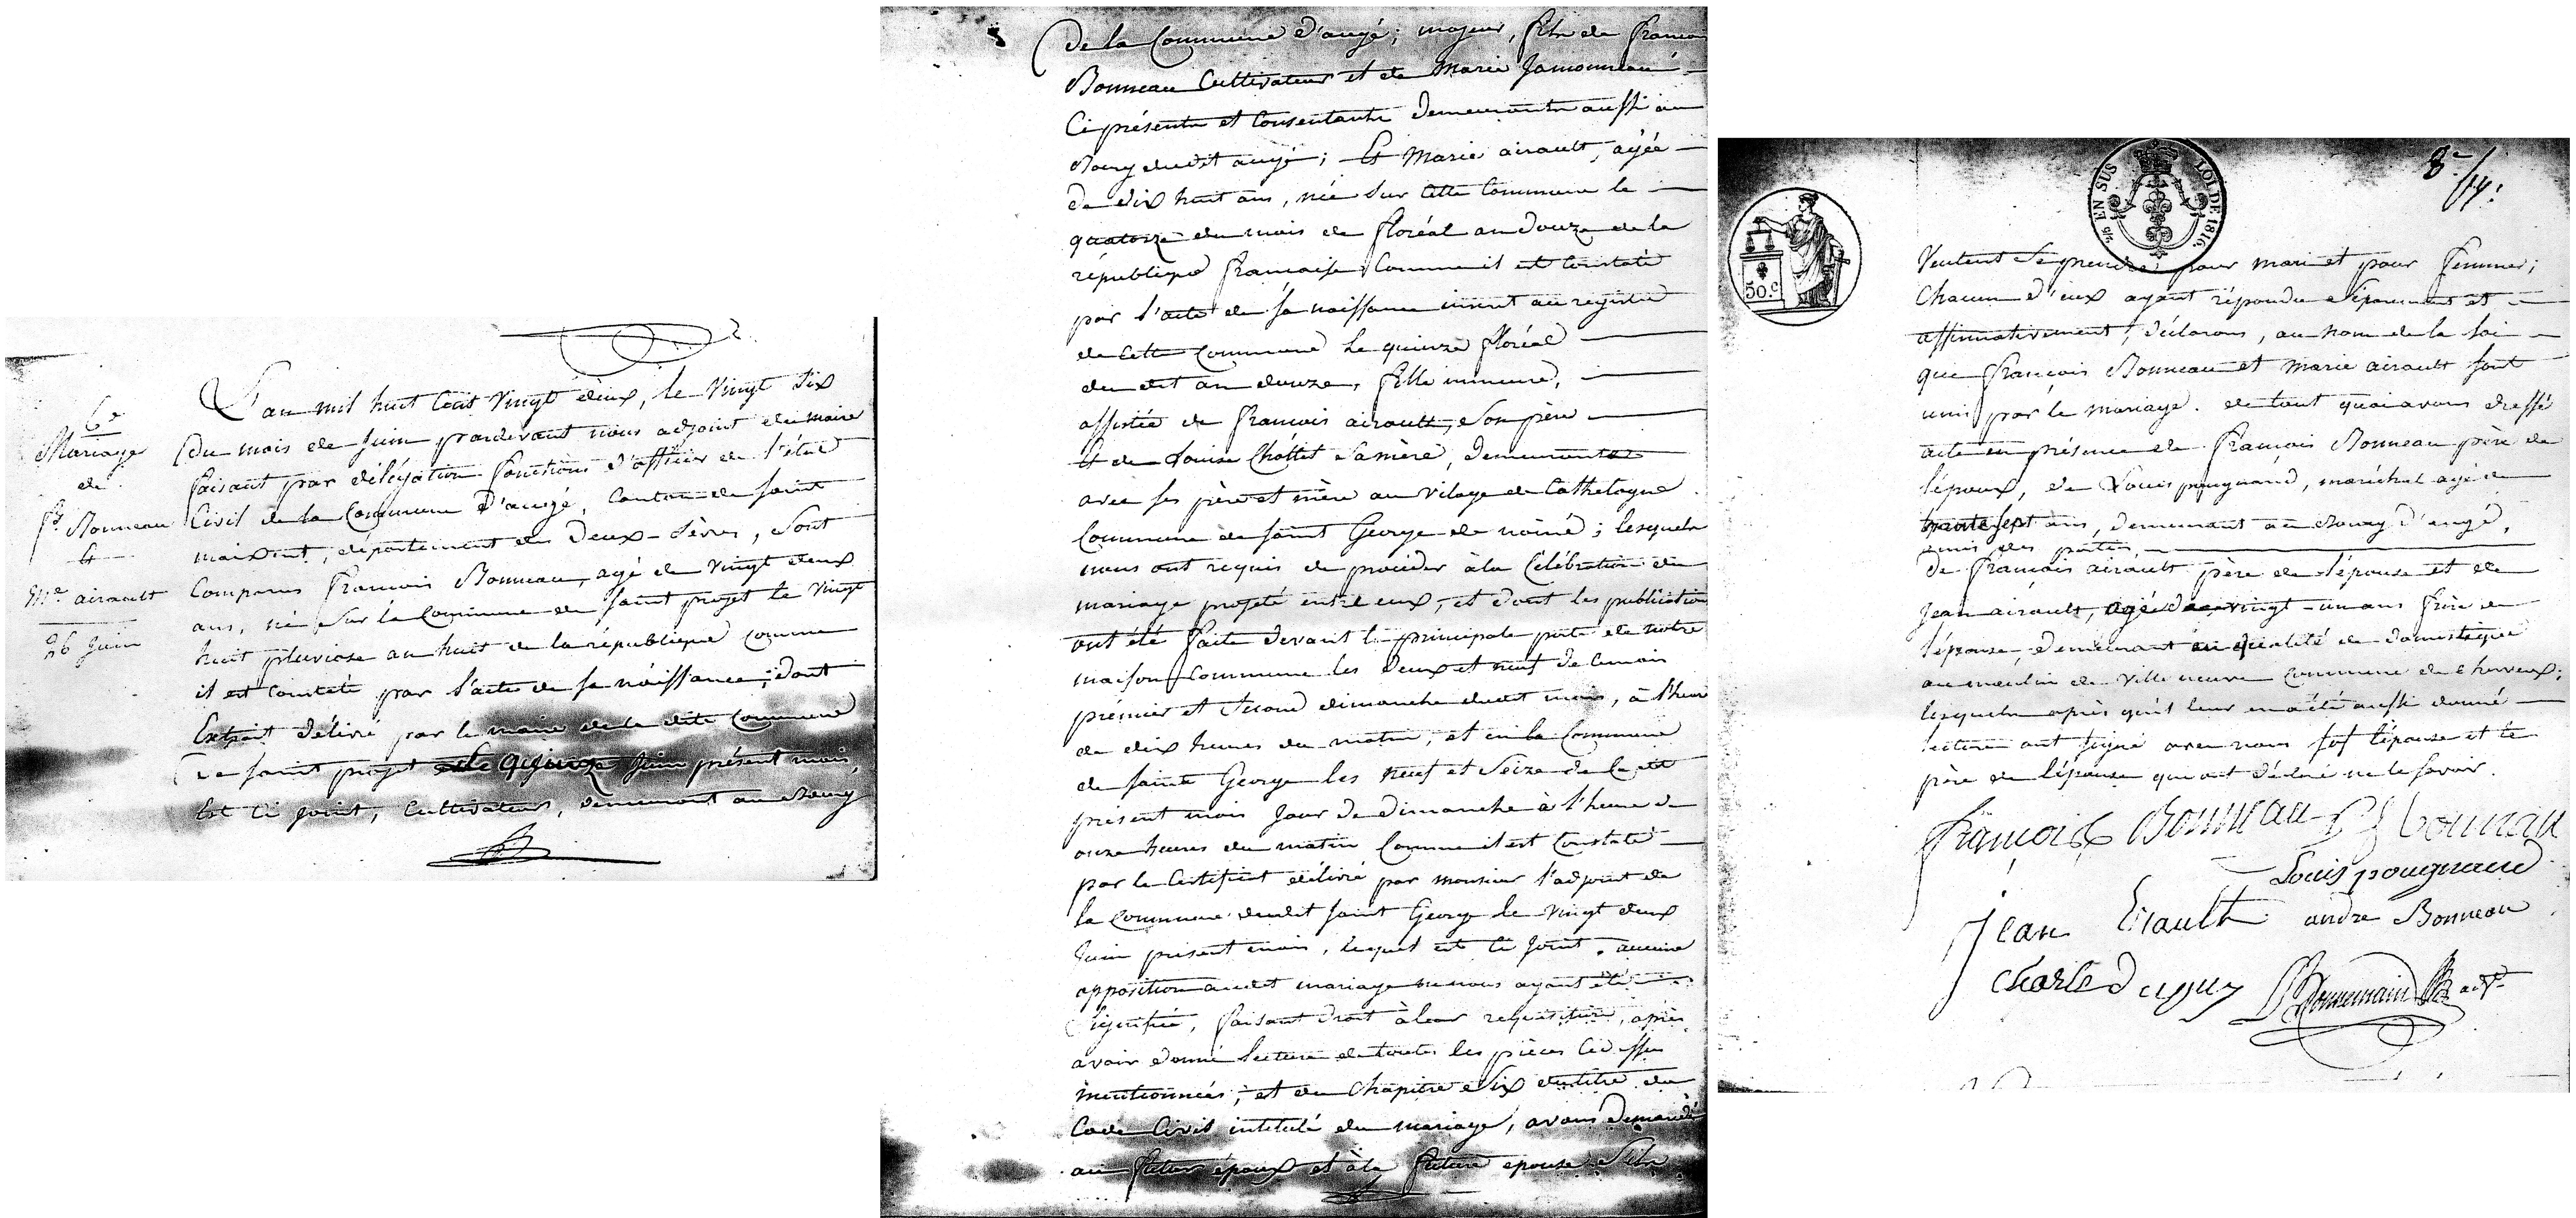 6e
Mariage
de
fs. Bonneau
et
Mie airault
26 juin
L'an mil huit cent vingt deux, le vingt six
du mois de juin pardevant nous adjoint du maire
faisant par délégation fonctions d'officier de l'état
civil de la Commune d'augé, Canton de saint
maixent, département des Deux-Sèvres, sont
comparus françois Bonneau, agé de vingt deux
ans, né sur la Commune de saint projet le vingt
huit pluviose an huit de la république comme
il est constaté par l'acte de sa naissance, dont
Extrait délivré par le maire de la dite Commune
de saint projet le quinze juin présent mois,
est ci joint, cultivateur, demeurant au bourg
de la Commune d'augé; majeur, fils de françois
Bonneau Cultivateur et de Marie Jamonneau
Ci présents et Consentants demeurants aussi au
Bourg dudit augé; Et Marie airault, agée
de dix huit ans, née sur cette Commune le
quatorze du mois de floréal an douze de la
république française Comme il est constaté
par l'acte de sa naissance inscrit au registre
de cette Commune le quinze floréal
du dit an douze, fille mineure,
assistée de françois airault, son père
et de Louise Chollet sa mère, demeurante
avec ses père et mère au vilage de Cathelogne
Commune de saint George de noiné; lesquels
nous ont requis de procéder à la Célébration du
mariage projeté entre eux, et dont les publications
ont été faite devant la principale porte de notre
maison Commune les deux et neuf de ce mois
prémier et second dimanche dudit mois, à l'heure
de dix heures du matin, et en la Commune
de sainte George les neuf et seize de ce dit
présent mois jour de dimanche à l'heure de
onze heures du matin Comme il est Constaté
par le Certificat délivré par monsieur l'adjoint de
la Commune dudit saint George le vingt deux
juin present mois, lequel est ci joint. aucune
opposition audit mariage ne nous ayant été
signifiée, faisant droit à leur requisition, après
avoir donné lecture de toutes les pièces ci dessus
mentionnées, et du chapitre six du titre du
Code Civil intitulé du mariage, avons demandé
au futur époux et à la future epouse s'ils
EN SUS
LOI DE 1816.
50.c
8e/14.
veulent se prendre pour mari et pour femme;
chacun d'eux ayant répondu séparément et
affirmativement, déclarons, au nom de la loi
que françois Bonneau et marie airault sont
unis par le mariage. de tout quoi avons dressé
acte en présence de françois Bonneau père de
l'époux, de Louis pougnaud, maréchal agé de
trente sept ans, demeurant au bourg d'augé,
amis des parties,
De françois airault père de l'épouse et de
Jean airault, agé de vingt-un ans frère de
l'épouse, demeurant en qualité de domestique
au moulin de ville neuve Commune de cherveux;
lesquels après qu'il leur en a été aussi donné
lecture ont signé avec nous fors l'épouse et le
père de l'épouse qui ont déclaré ne le savoir.
françois Bonneau f Bonneau
Louis pougnaud
jean Erault andre Bonneau
charle Duguy Bonnemain adjt